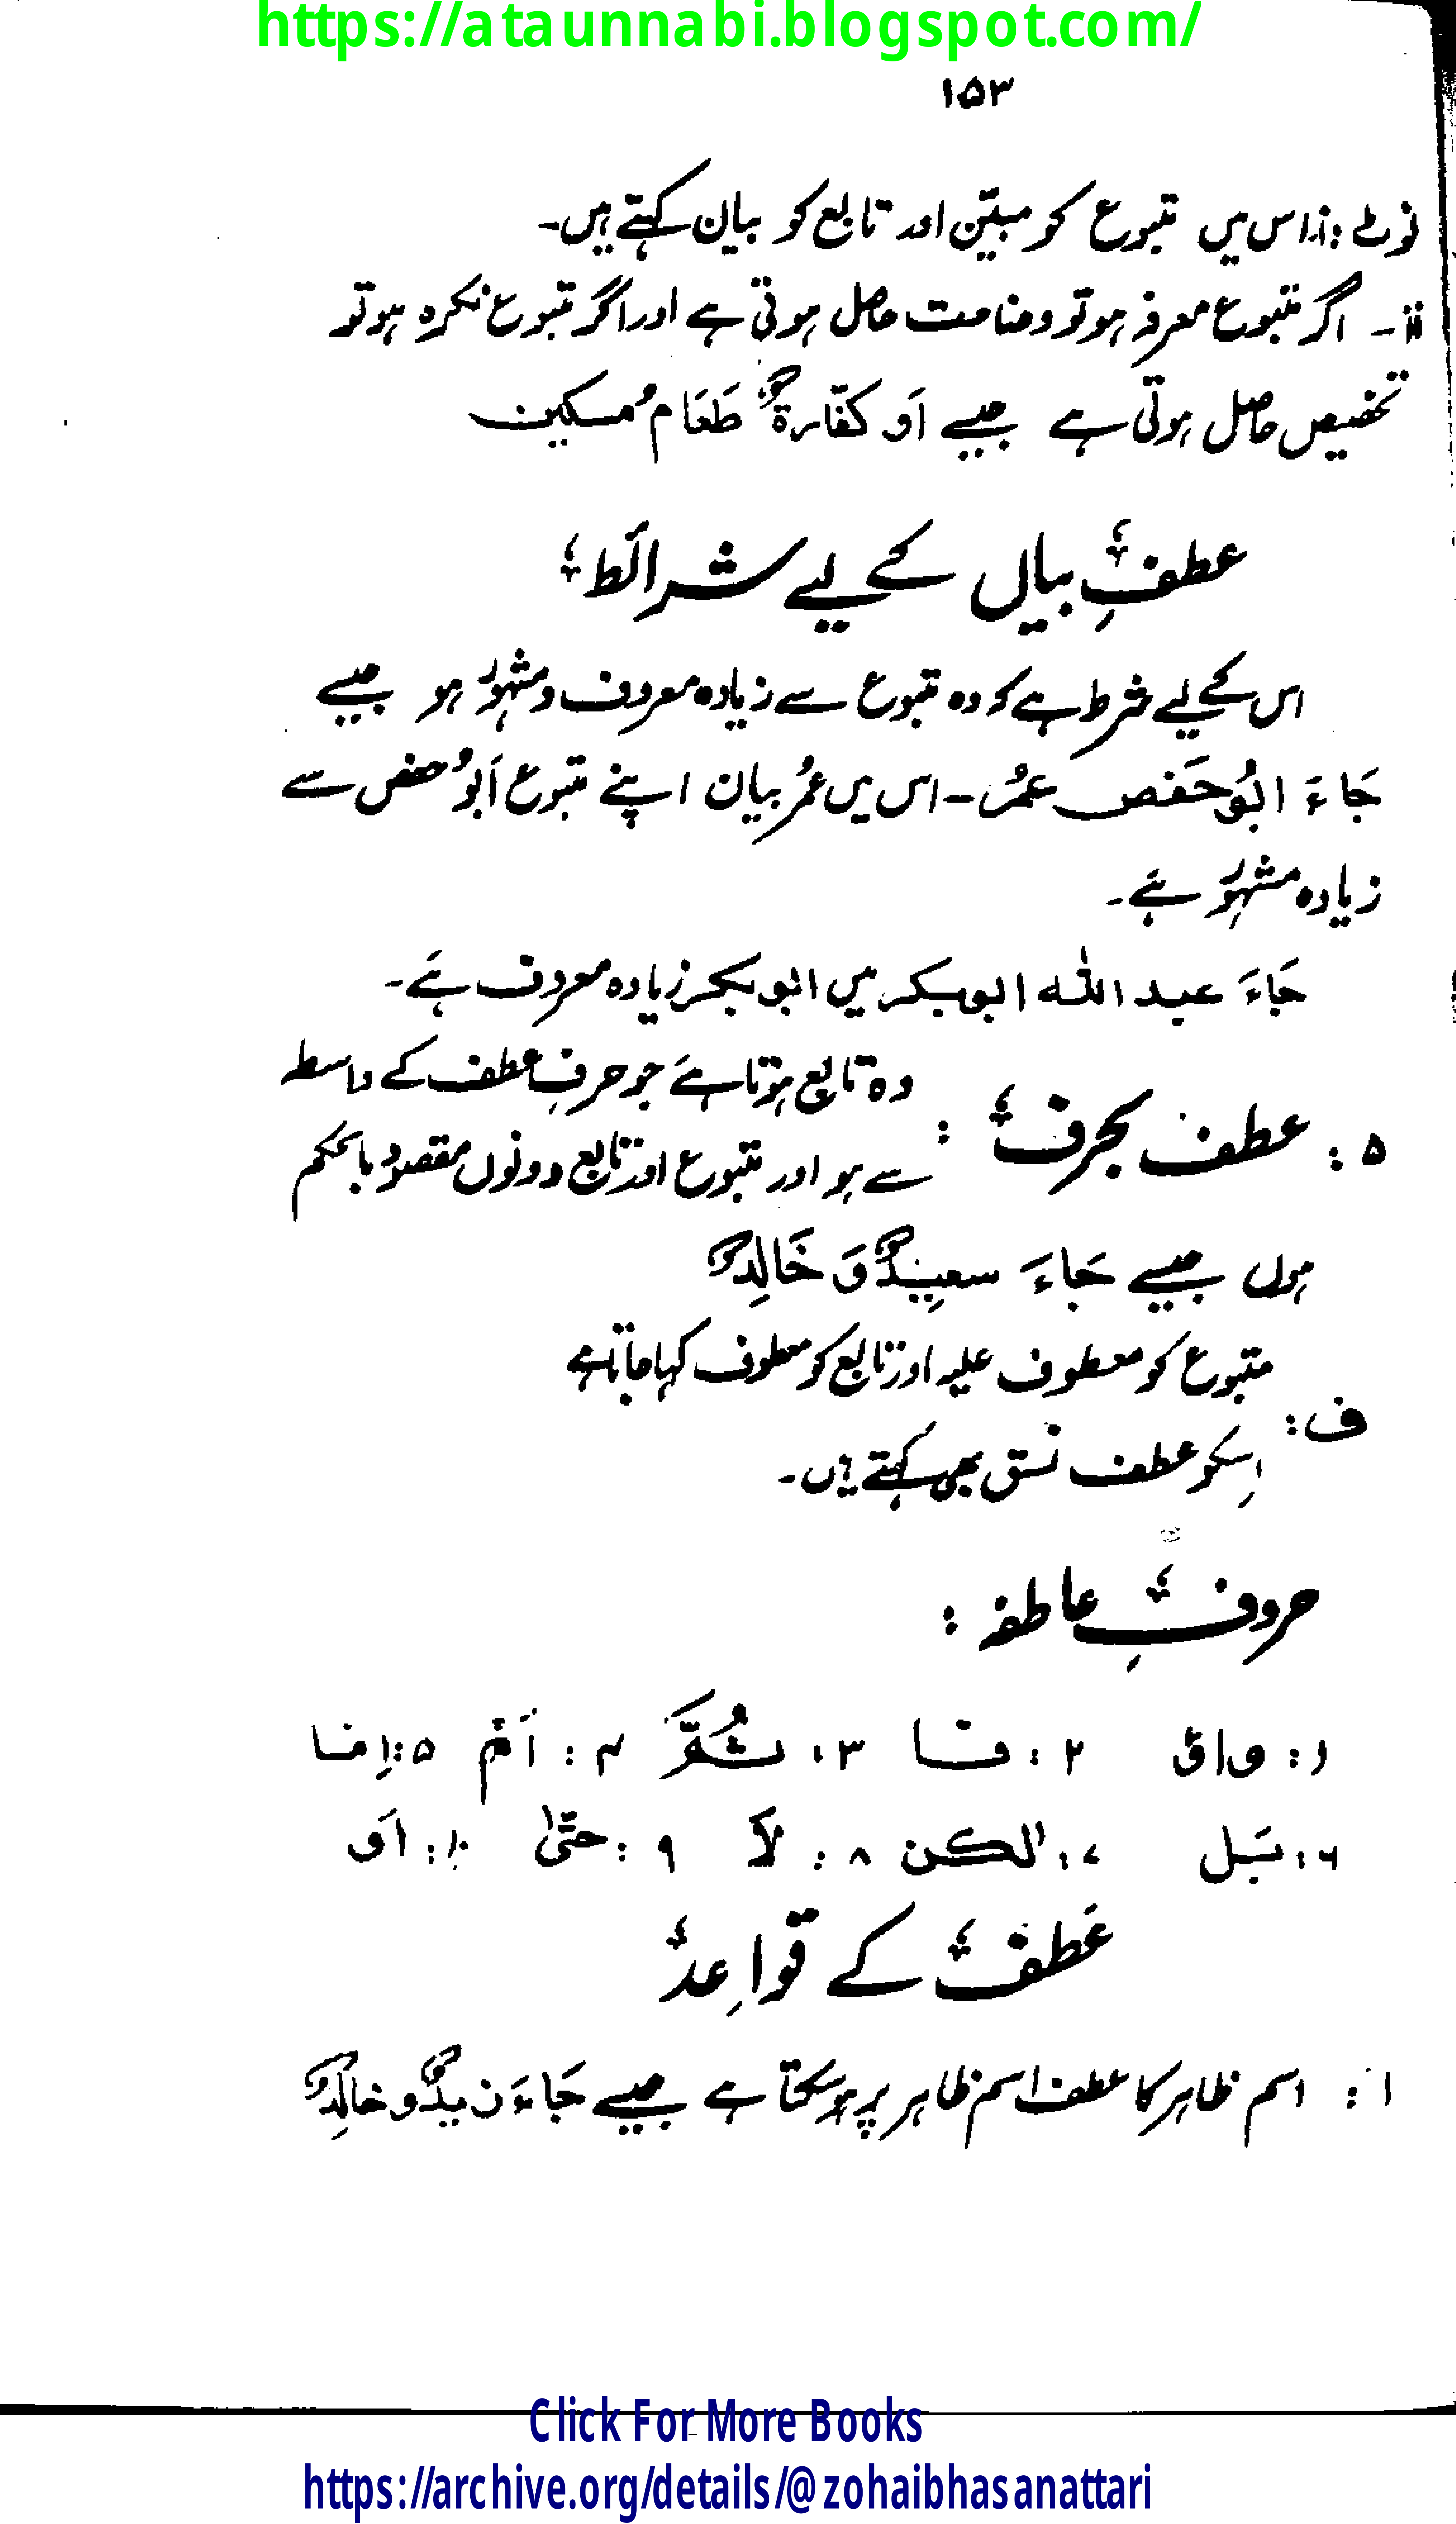 https://ataunnabi.blogspot.com/
۱۵۳
نوٹ: i: اس میں متبوع کو مبیّن اور تابع کو بیان کہتے ہیں۔
ii۔ اگر متبوع معرفہ ہو تو وضاحت حاصل ہوتی ہے اور اگر متبوع نکرہ ہو تو
تخصیص حاصل ہوتی ہے جیسے اَو کفّارۃٌ طَعَامُ مسکین
عطفِ بیاں کے لیے شرائط
اس کے لیے شرط ہے کہ وہ متبوع سے زیادہ معروف و مشہور ہو جیسے
جَاءَ ابُو حَفص عمُر۔ اس میں عمُر بیان اپنے متبوع اَبُو حفص سے
زیادہ مشہور ہے۔
جَاءَ عبد اللہ ابوبکر میں ابوبکر زیادہ معروف ہے۔
۵: عطف بحرف: وہ تابع ہوتا ہے جو حرفِ عطف کے واسطہ
سے ہو اور متبوع اور تابع دونوں مقصود بالحکم
ہوں جیسے جَاءَ سعِیدٌ وَ خَالِدٌ
ف: متبوع کو معطوف علیہ اور تابع کو معطوف کہا جاتا ہے
اِسکو عطف نسق بھی کہتے ہیں۔
حروفِ عاطفہ:
۱: واؤ ۲: فا ۳: ثُمَّ ۴: اَمْ ۵: اِما
۶: بَل ۷: لٰکن ۸: لَا ۹: حتّیٰ ۱۰: اَو
عَطف کے قواعد
۱: اسم ظاہر کا عطف اسم ظاہر پر ہو سکتا ہے جیسے جَاءَ زیدٌ و خالِدٌ
Click For More Books
https://archive.org/details/@zohaibhasanattari